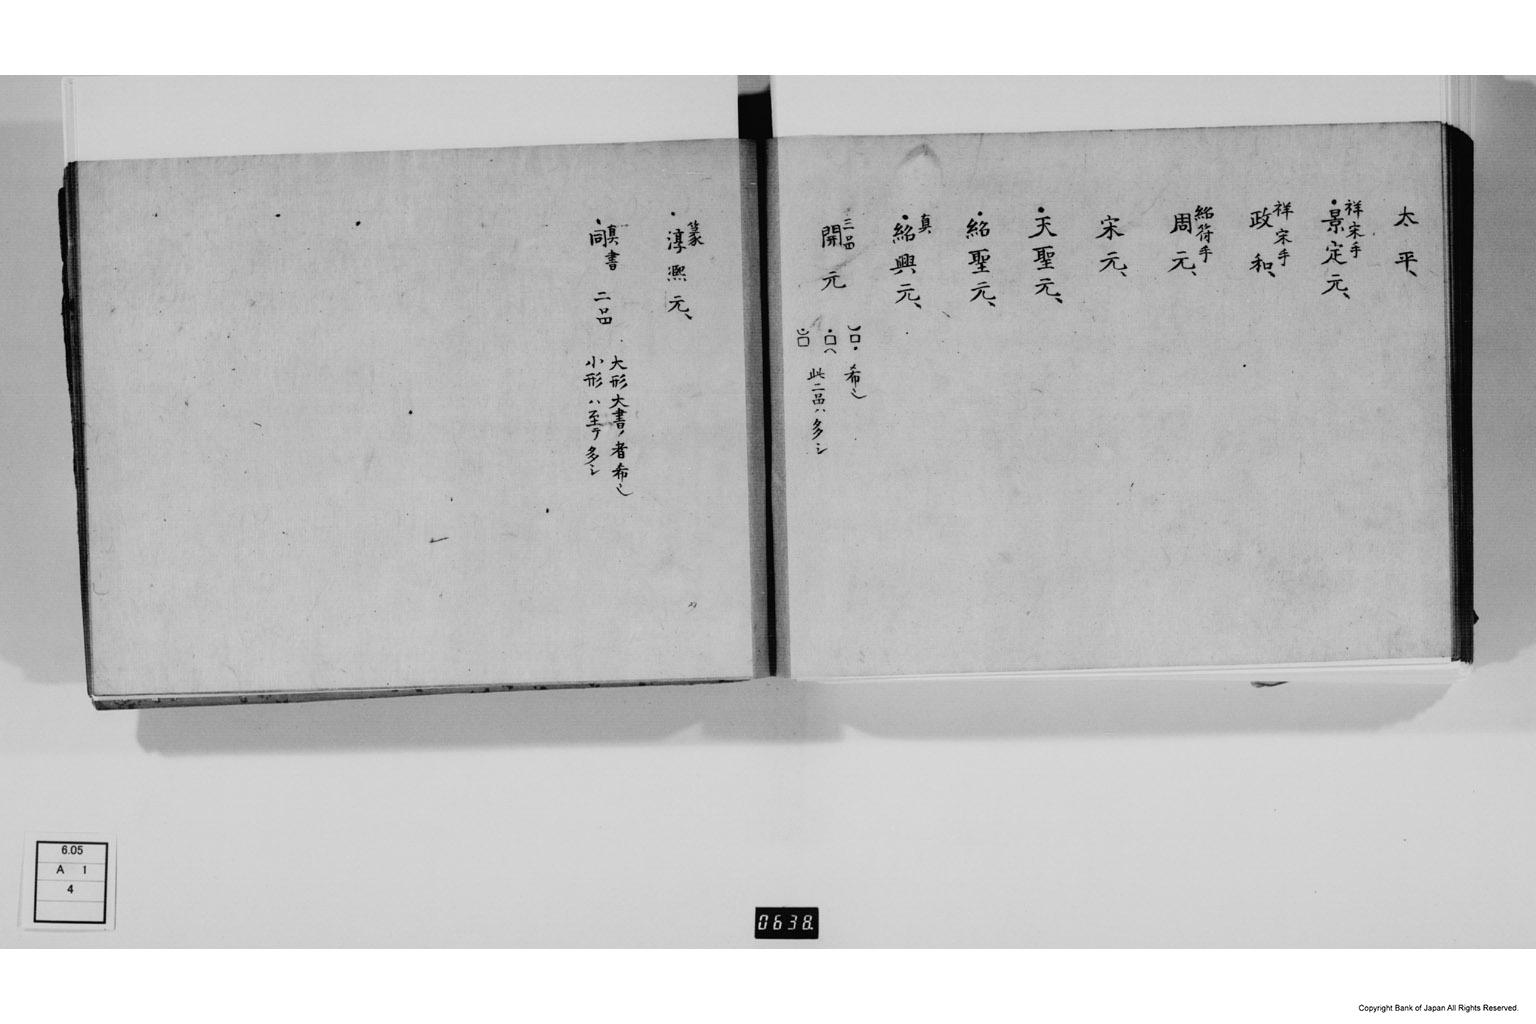 太平、
祥宋手
・景定元、
祥宋手
政和、
紹符手
周元、
宋元、
・天聖元、
・紹聖元、
真
・紹興元、
三品
開元
希シ
此二品ハ多シ
篆
・淳熙元、
・同真書 二品
大形大書ノ者希シ
小形ハ至テ多シ
6.05
A 1
4
0638.
Copyright Bank of Japan All Rights Reserved.